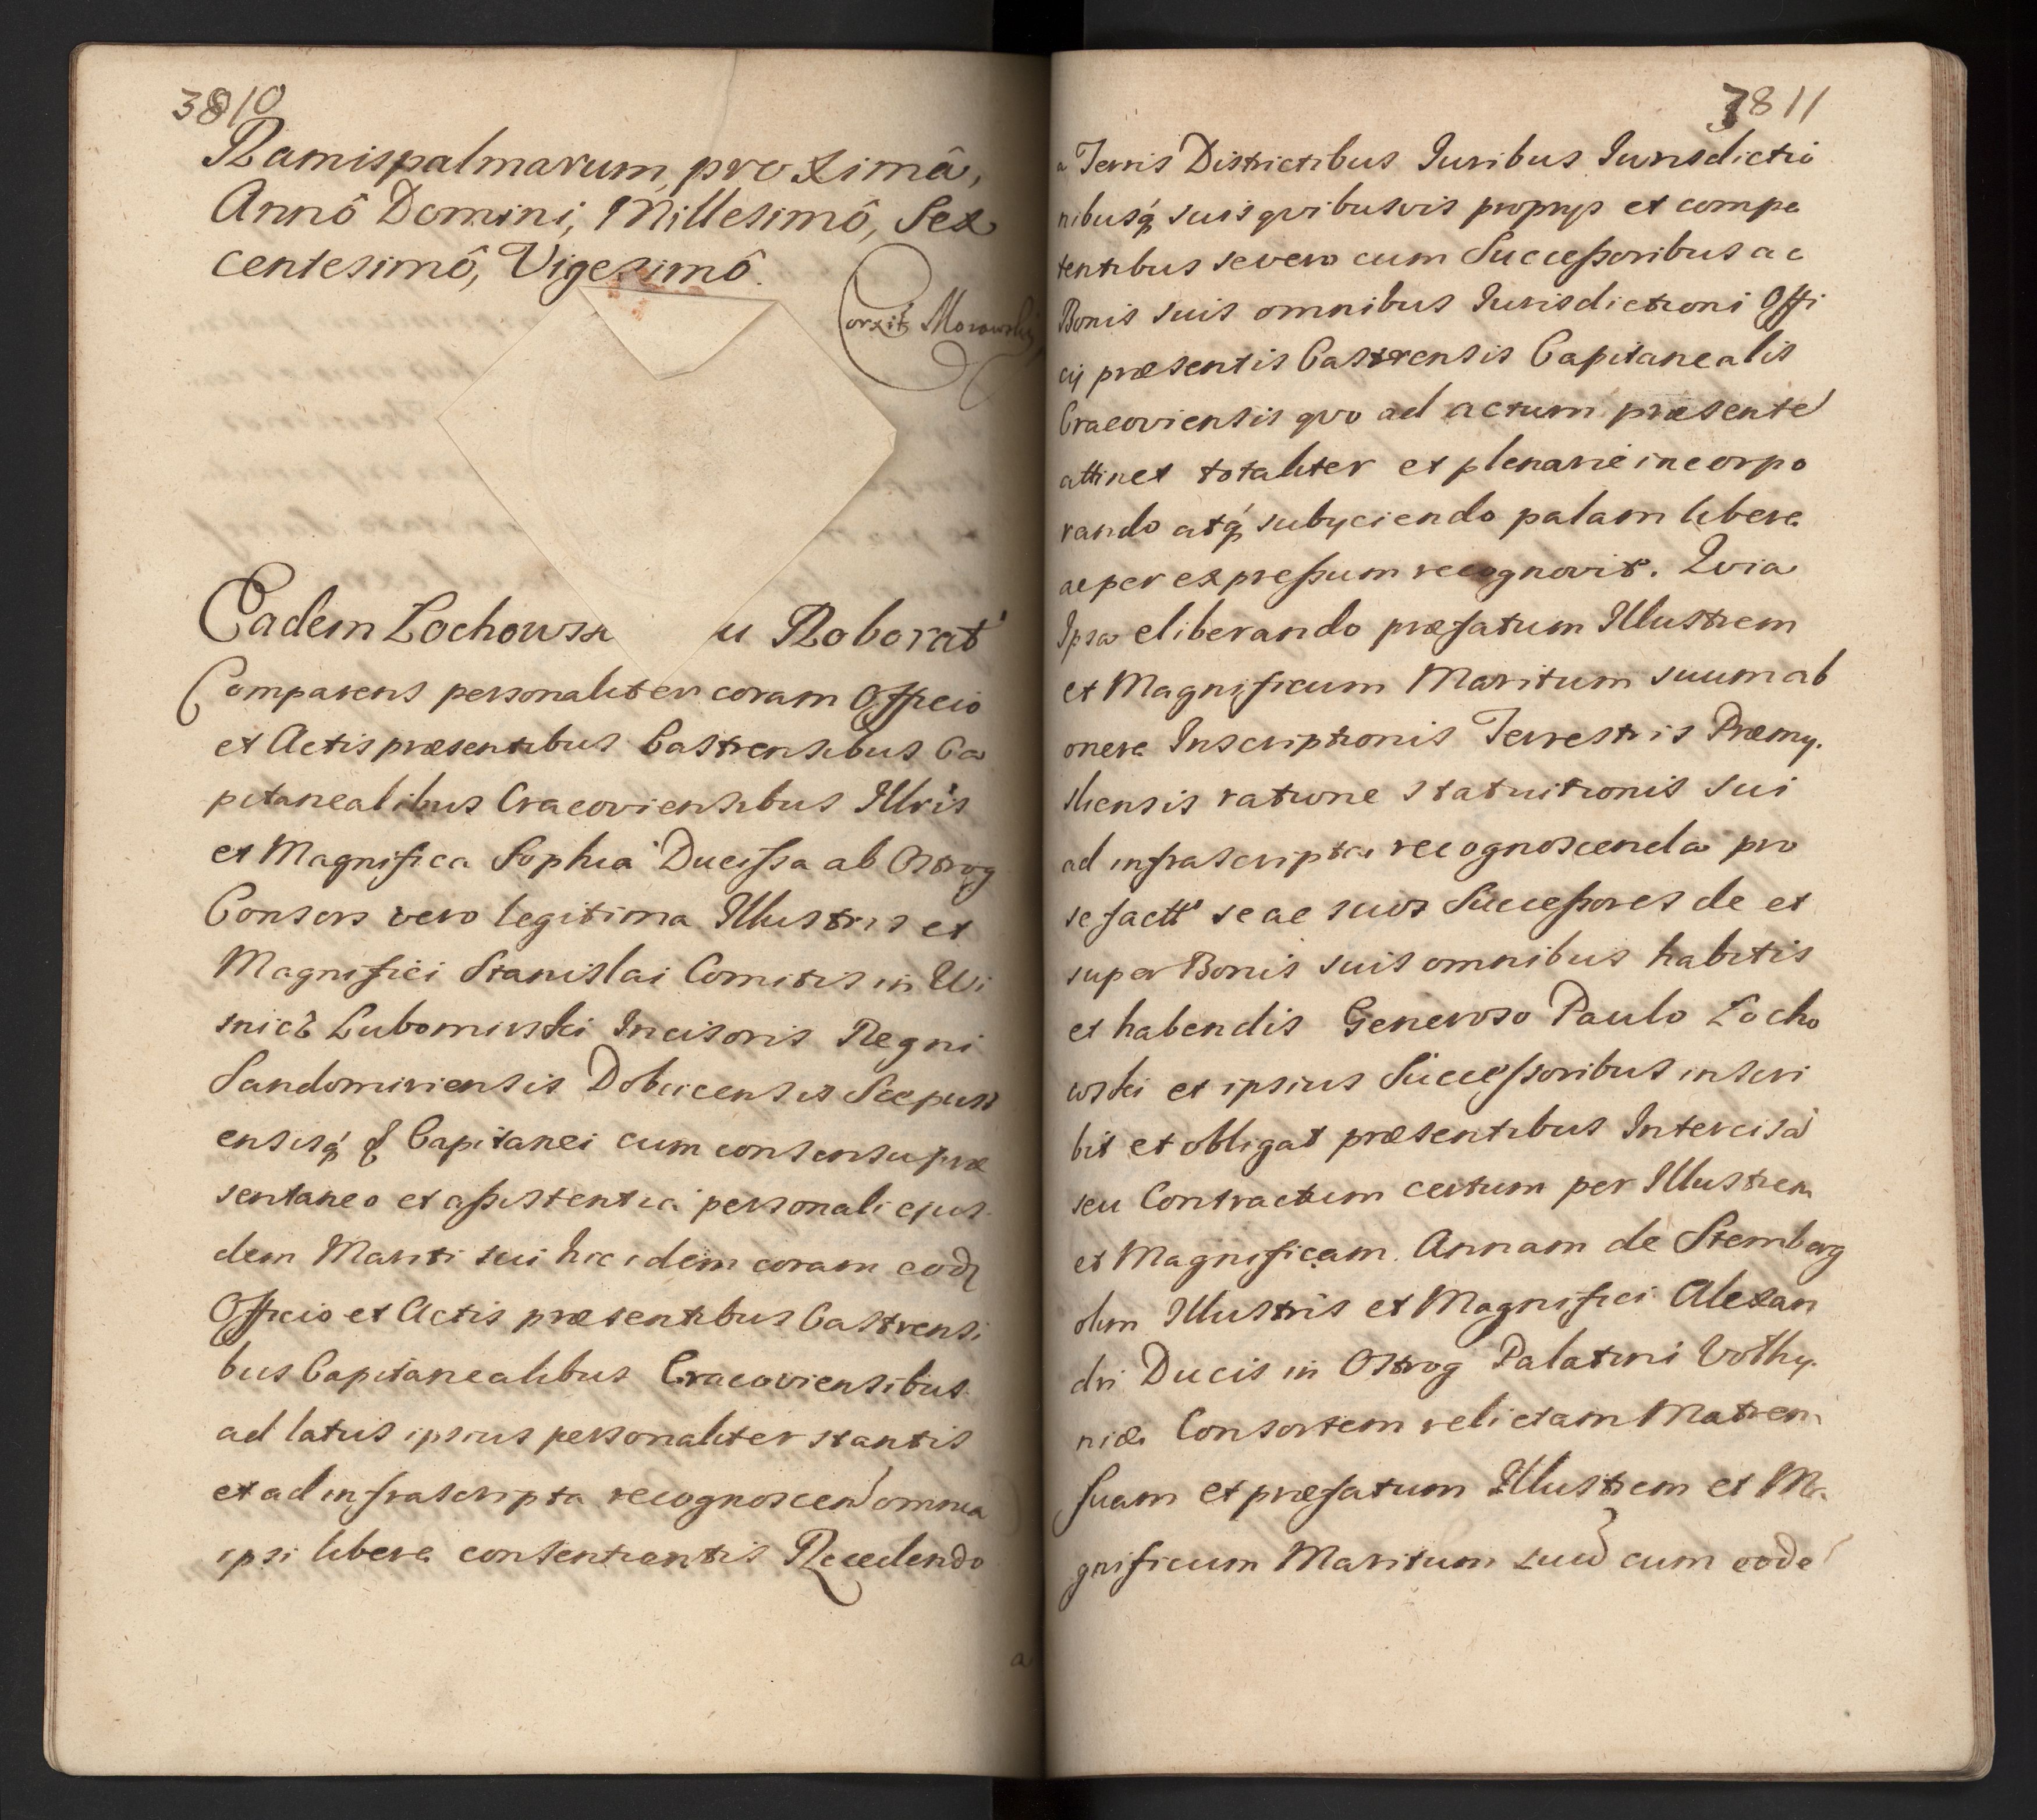 3810
Ramispalmarum, proximâ,
Annô Domini, Millesimô, Sex
centesimô, Vigesimô.
Corxit Morowski
Eadem Lochows u Roborat
Comparens personaliter coram Officio
et Actis præsentibus Castrensibus Ca
pitanealibus Cracoviensibus Illris
et Magnifica Sophia Ducissa ab Ostrog
Consors vero legitima Illustris et
Magnifici Stanislai Comitis in Wi
snicz Lubomirski Incisoris Regni
Sandomiriensis Dobcicensis Scepusi
ensisq́ Capitanei cum consensu præ
sentaneo et assistentia personali ejus
dem Mariti sui hic idem coram eod
Officio et Actis præsentibus Castrensi
bus Capitanealibus Cracoviensibus
ad latus ipsius personaliter stantis
et ad infrascripta recognoscend omnia
ipsi libere consentientis Recedendo
a
3811
a Terris Districtibus Iuribus Iurisdictio
nibusq́ suis quibusvis proprys et compe
tentibus se vero cum Successoribus ac
Bonis suis omnibus Iurisdictioni Offi
cij præsentis Castrensis Capitanealis
Cracoviensis quo ad actum præsente
attinet totaliter et plenarie incorpo
rando atq́ subyciendo palam libere
ac per expressum recognovit. Quia
Ipsa eliberando præfatum Illustrem
et Magnificum Maritum suum ab
onere Inscriptionis Terrestris Præmy
sliensis ratione statuitionis sui
ad infrascripta recognoscenda pro
se factt se ac suos Successores de et
super Bonis suis omnibus habitis
et habendis Generoso Paulo Locho
wski et ipsius Successoribus inscri
bit et obligat præsentibus Intercisa
seu Contractum certum per Illustrem
et Magnificam Annam de Stemberg
olim Illustris et Magnifici Alexan
dri Ducis in Ostrog Palatini Volhy
niæ Consortem relictam Matrem
suam et præfatum Illustrem et Ma
gnificum Maritum suu cum eode